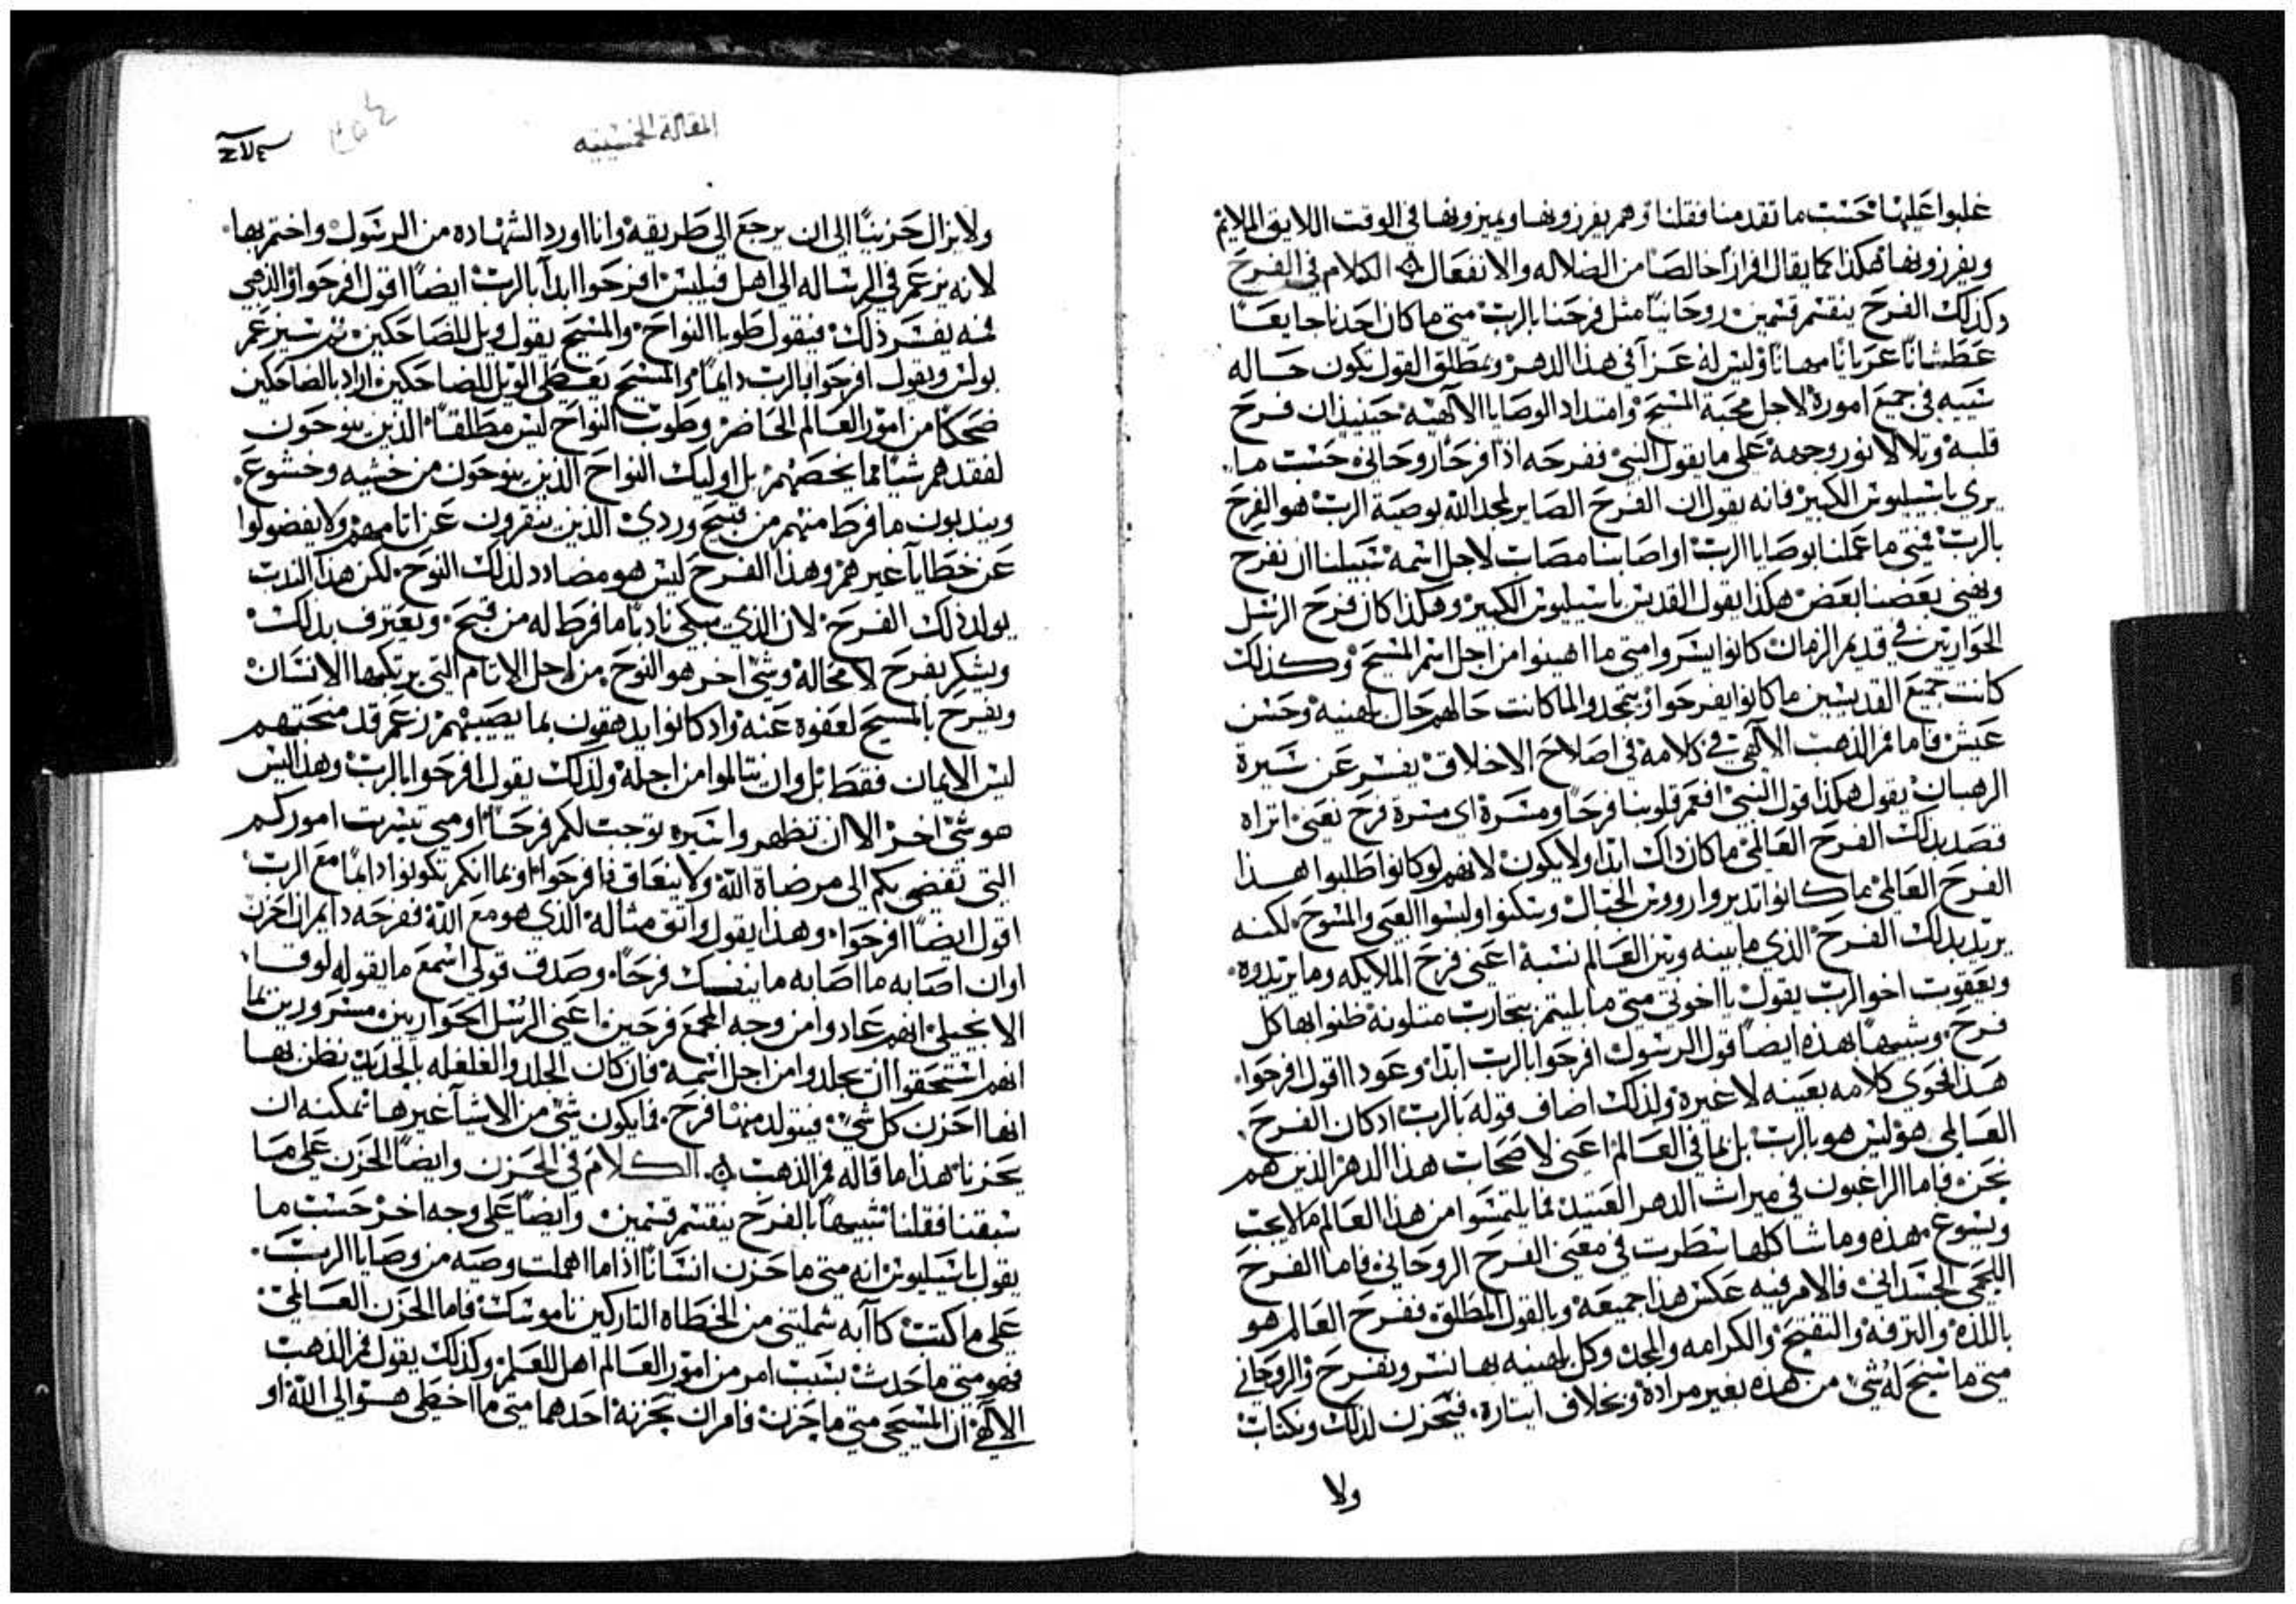 غلبوا عليها حسب ما تقدم منا فقلنا وهم يفرزونها ويميزونها في الوقت اللايق الملايم
ويفرزونها هكذا كما يقال افرازا خالصا من الضلاله والانفعال الكلام في الفرح
وكذلك الفرح ينقسم قسمين روحانيا مثل فرحنا بالرب متى ما كان احدنا جايعا
عطشانا عريانا مهانا وليس له عزا في هذا الدهر وبمطلق القول تكون حاله
شبيه في جميع اموره لاجل محبة المسيح وامتداد الوصايا الالهيه حينيذ ان فرح
قلبه وتلالا نور وجهه على ما يقول النبي ففرحه اذا فرحا روحاني حسب ما
يرى باسيليوس الكبير فانه يقول ان الفرح الصاير لمجد الله بوصية الرب هو الفرح
بالرب فمتى ما عملنا بوصايا الرب او اصابنا مصاب لاجل اسمه سبيلنا ان نفرح
ونهني بعضنا بعض هكذا يقول القديس باسيليوس الكبير وهكذا كان فرح الرسل
الحواريين في قديم الزمان كانوا يسروا متى ما اهينوا من اجل اسم المسيح وكذلك
كانت جميع القديسين ما كانوا يفرحوا ويتمجدوا لما كانت حالهم حال باهنيه وحسن
عيش فاما فم الذهب الالهي في كلامه في اصلاح الاخلاق يفسر عن سيرة
الرهبان يقول هكذا قول النبي افعم قلوبنا فرحا ومسرة اي مسرة فرح نعني اتراه
قصد بذلك الفرح العالمي ما كان ذاك ابدا ولا يكون لانهم لو كانوا طلبوا هذا
الفرح العالمي ما كانوا تديروا رووس الجبال وسكنوا ولبسوا العبي والمسوح لكنه
يريد بذلك الفرح الذي ما بينه وبين العالم نسبة اعني فرح الملايكه وما يريدوه
ويعقوب اخو الرب يقول يا اخوتي متى ما بليتم بتجارب متلونة ظنوا بها كل
فرح ويشبهها بهذه ايضا قول الرسول افرحوا بالرب ابدا وعودا اقول افرحوا
هذا فحوى كلامه بعينه لا غيره ولذلك اضاف قوله بالرب اذ كان الفرح
العالمي هو ليس هو بالرب بل بما في العالم اعني لاصحاب هذا الدهر الذين هم
نحن فاما الراغبون في ميراث الدهر العتيد فما يلتمسوا من هذا العالم ما لا يجب
ويسوغ بهذه وما شاكلها سطرت في معنى الفرح الروحاني فاما الفرح
اللحمي الجسداني فالامر فيه عكس هذا جميعه وبالقول المطلق ففرح العالم هو
باللذه والترفه والتفتح والكرامه والمجد وكل باهنيه بها نسر ونفرح والروحاني
متى ما سنح له شي من هذه بغير مراده وبخلاف ايثاره فيحزن لذلك ويكتاب
ولا
المقالة الخمسينيه
ولا يزال حزينا الى ان يرجع الى طريقه وانا اورد الشهاده من الرسول واختم بها
لانه يزعم في الرساله الى اهل فيلبس افرحوا ابدا بالرب ايضا اقول افرحوا والذهبي
فمه يفسر ذلك فيقول طوبا النواح والمسيح يقول ويل للضاحكين ثم سيزعم
بولس ويقول افرحوا بالرب دايما فالمسيح يعطي الويل للضاحكين اراد بالضاحكين
ضحكا من امور العالم الحاضر وطوب النواح ليس مطلقا الذين ينوحون
لفقدهم شيا مما يخصهم بل اوليك النواح الذين ينوحون من خشيه وخشوع
ويندبون ما فرط منهم من قبيح وردي الذين ينقرون عن اثامهم ولا يفضولوا
عن خطايا غيرهم وهذا الفرح ليس هو مضادد لذلك النوح لكن هذا الندب
يولد ذلك الفرح لان الذي يبكي نادبا ما فرط له من قبيح ويعترف بذلك
ويشكر يفرح لا محاله وشي اخر هو النوح من اجل الاثام التي يرتكبها الانسان
ويفرح بالمسيح لعفوه عنه واذ كانوا يدهقون بما يصيبهم زعم قد منحتهم
ليس الايمان فقط بل وان تتالموا من اجله ولذلك يقول افرحوا بالرب وهذا ليس
هو شي اخر الا ان تظهروا سيره توجب لكم فرحا او متى تيسرت اموركم
التي تفضي بكم الى مرضاة الله ولا ينعاق فافرحوا او بما انكم تكونوا دايما مع الرب
اقول ايضا افرحوا وهذا يقول واثق مثاله الذي هو مع الله ففرحه دايم ان احزن
او ان اصابه ما اصابه ما ينفك فرحا وصدق قولي اسمع ما يقوله لوقا
الانجيلي انهم عادوا من وجه المجمع فرحين اعني الرسل الحواريين مسرورين بما
انهم استحقوا ان يجلدوا من اجل اسمه فان كان الجلد والغلغله بالحديد نظن بها
انها احزن كل شي فيتولد منها فرح فما يكون شي من الاشيا غيرها تمكنه ان
يحزنا هذا ما قاله فم الذهب الكلام في الحزن وايضا الحزن على ما
سبقنا فقلنا شبيها بالفرح ينقسم قسمين وايضا على وجه اخر حسب ما
يقول باسيليوس انه متى ما حزن انسانا اذا ما اهملت وصيه من وصايا الرب
على ما كتب كآبه شملتني من الخطاه التاركين ناموسك فاما الحزن العالمي
فهو متى ما حدث بسبب امر من امور العالم اهل للعلم وكذلك يقول فم الذهب
الالهي ان المسيحي متى ما حزن فامران يحزنه احدهما متى ما اخطى هو الى الله او